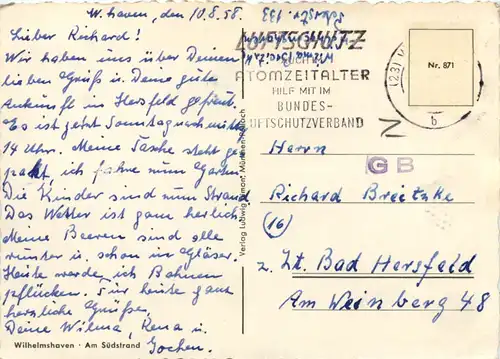 W. haven, den 10.8.58.
Lieber Richard!
Wir haben uns über Deinen
lieben Gruß u. Deine gute
Ankunft in Hersfeld gefreut.
Es ist jetzt Sonntagnachmittag
14 Uhr. Meine Tasche steht ge-
packt, ich fahre zum Garten.
Die Kinder sind zum Strand.
Das Wetter ist ganz herrlich.
Meine Beeren sind alle
runter u. schon im Gläser.
Heute werde ich Bohnen
pflücken. Für heute ganz
herzliche Grüße
Deine Wilma, Rena u.
Jochen.
Wilhelmshaven · Am Südstrand
Verlag Ludwig München
LUFTSCHUTZ
ATOMZEITALTER
HILF MIT IM
BUNDES-
LUFTSCHUTZVERBAND
(23)
b
Nr. 871
Herrn
GB
Richard Breitzke
(16)
z. Zt. Bad Hersfeld
Am Weinberg 48